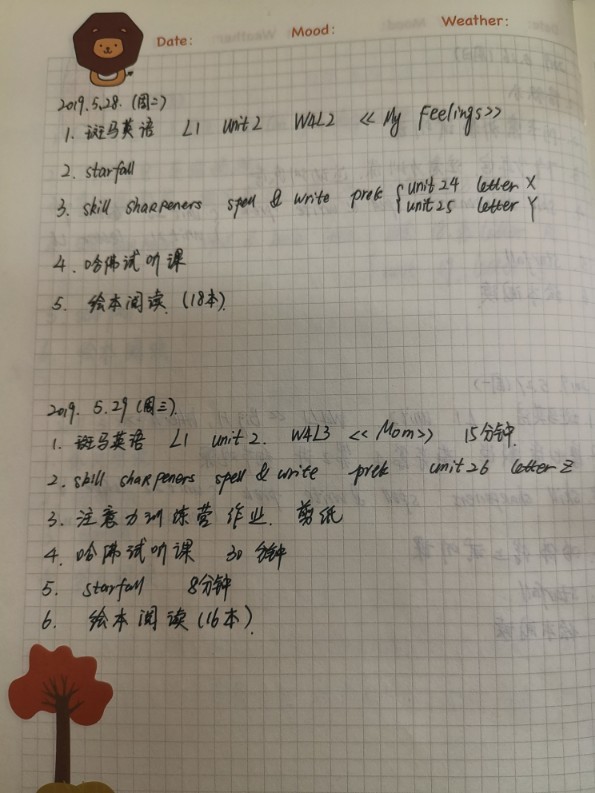 Date: Mood: Weather:
2019.5.28.(周二)
1. 斑马英语 L1 unit 2 W4L2 《My Feelings》
2. starfall
3. skill sharpeners spell & write prek { unit 24 letter X
unit 25 letter Y
4. 哈佛试听课
5. 绘本阅读.(18本).
2019. 5.29 (周三).
1. 斑马英语 L1 unit 2. W4L3 《Mom》 15分钟.
2. skill sharpeners spell & write prek unit 26 letter Z
3. 注意力训练营作业. 剪纸
4. 哈佛试听课 30分钟
5. starfall 8分钟
6. 绘本阅读(16本).